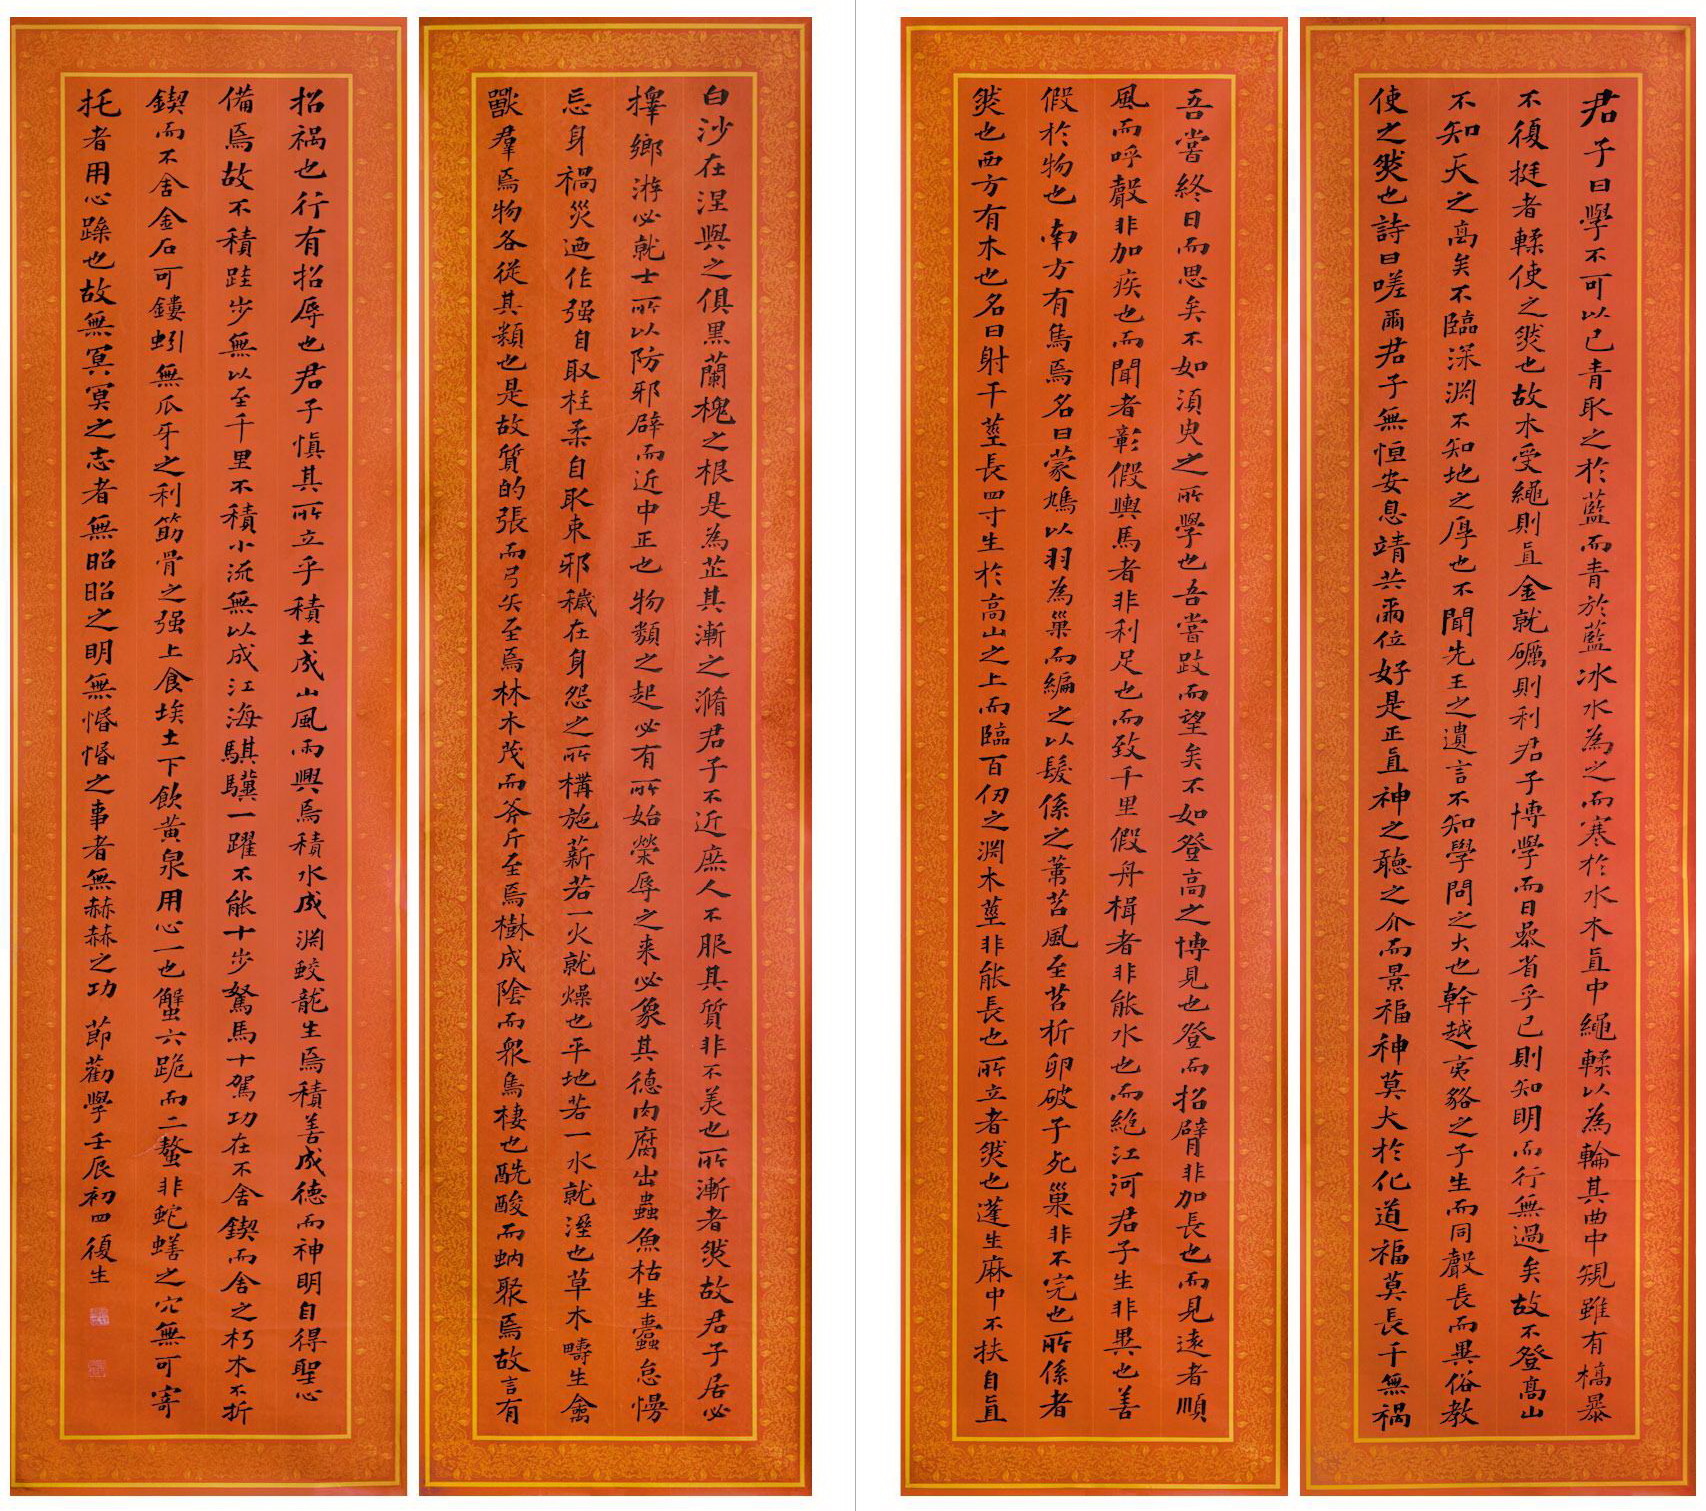 君子曰學不可以已青取之於藍而青於藍冰水為之而寒於水木直中繩輮以為輪其曲中規雖有槁暴
不復挺者輮使之然也故木受繩則直金就礪則利君子博學而日參省乎己則知明而行無過矣故不登高山
不知天之高矣不臨深淵不知地之厚也不聞先王之遺言不知學問之大也幹越夷貉之子生而同聲長而異俗教
使之然也詩曰嗟爾君子無恒安息靖共爾位好是正直神之聽之介而景福神莫大於化道福莫長千無禍
吾嘗終日而思矣不如須臾之所學也吾嘗跂而望矣不如登高之博見也登而招臂非加長也而見遠者順
風而呼聲非加疾也而聞者彰假輿馬者非利足也而致千里假舟楫者非能水也而絕江河君子生非異也善
假於物也南方有鳥焉名曰蒙鳩以羽為巢而編之以髮係之葦苕風至苕析卵破子死巢非不完也所係者
然也西方有木也名曰射千莖長四寸生於高山之上而臨百仞之淵木莖非能長也所立者然也蓬生麻中不扶自直
白沙在涅與之俱黑蘭槐之根是為芷其漸之滫君子不近庶人不服其質非不美也所漸者然故君子居必
擇鄉游必就士所以防邪辟而近中正也物類之起必有所始榮辱之来必象其德肉腐出蟲魚枯生蠹怠慢
忘身禍災迺作强自取柱柔自取束邪穢在身怨之所構施薪若一火就燥也平地若一水就溼也草木疇生禽
獸羣焉物各從其類也是故質的張而弓矢至焉林木茂而斧斤至焉樹成陰而衆鳥棲也酰酸而蚋聚焉故言有
招禍也行有招辱也君子慎其所立乎積土成山風雨興焉積水成淵鮫龍生焉積善成德而神明自得聖心
備焉故不積跬步無以至千里不積小流無以成江海騏驥一躍不能十步駑馬十駕功在不舍鍥而舍之朽木不折
鍥而不舍金石可鏤蚓無爪牙之利筋骨之强上食埃土下飲黃泉用心一也蟹六跪而二螯非蛇蟮之穴無可寄
托者用心躁也故無冥冥之志者無昭昭之明無惛惛之事者無赫赫之功 節勸學壬辰初四復生